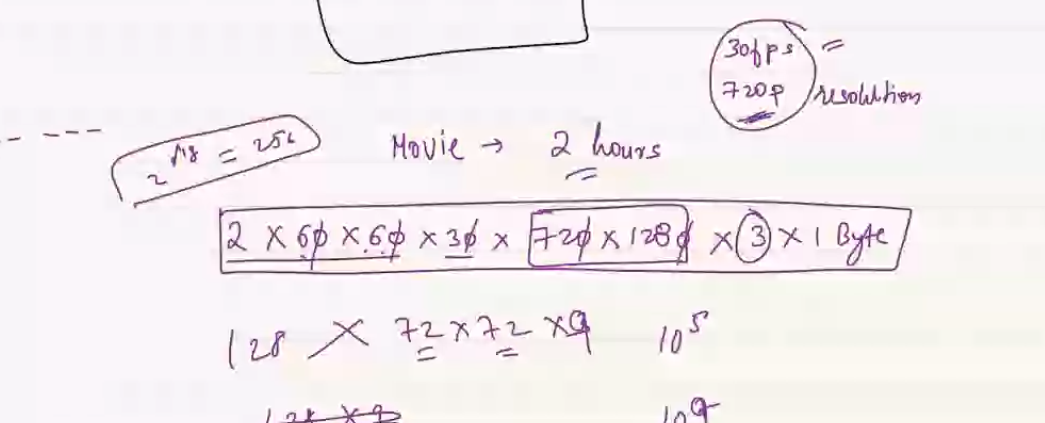 30fps =
720p resolution
2^8 = 256
Movie → 2 hours
2 × 60 × 60 × 30 × 720 × 1280 × 3 × 1 Byte
128 × 72 × 72 × 9 10^5
10^9